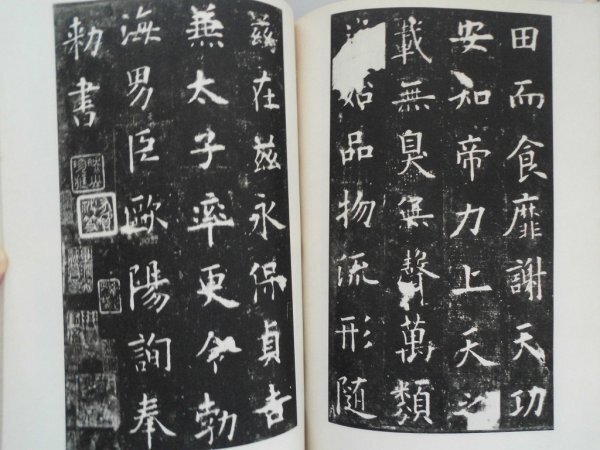 田而食靡謝天功
安知帝力上天之
載無臭無聲萬類
始品物流形隨
茲在茲永保貞吉
兼太子率更令勃
海男臣歐陽詢奉
勅書